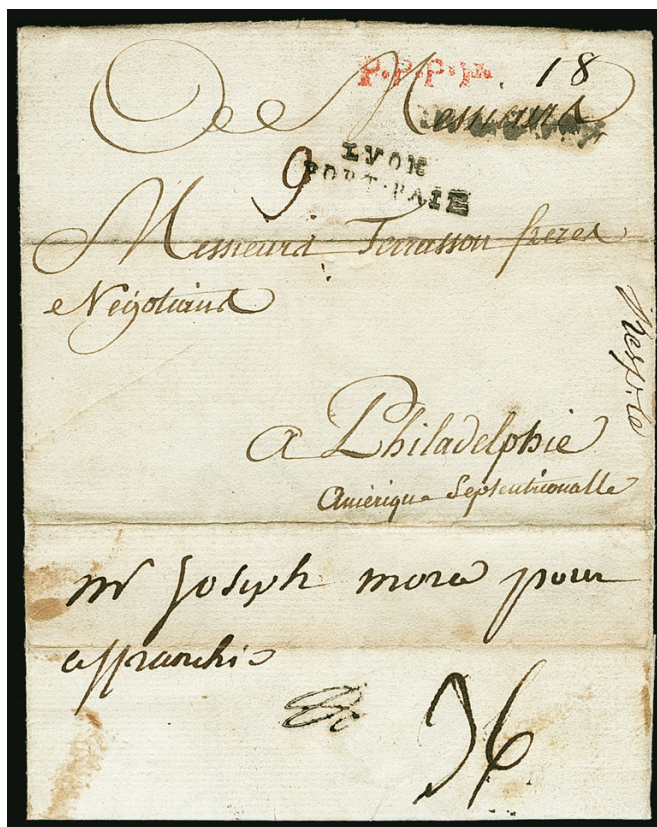 P.P.P.P. 18
Messieurs
LYON
PORT-PAIE
9
Messieurs Terrasson freres
Négotians
a Philadelphie
Amérique Septentrionalle
mr Joseph pour
affranchir